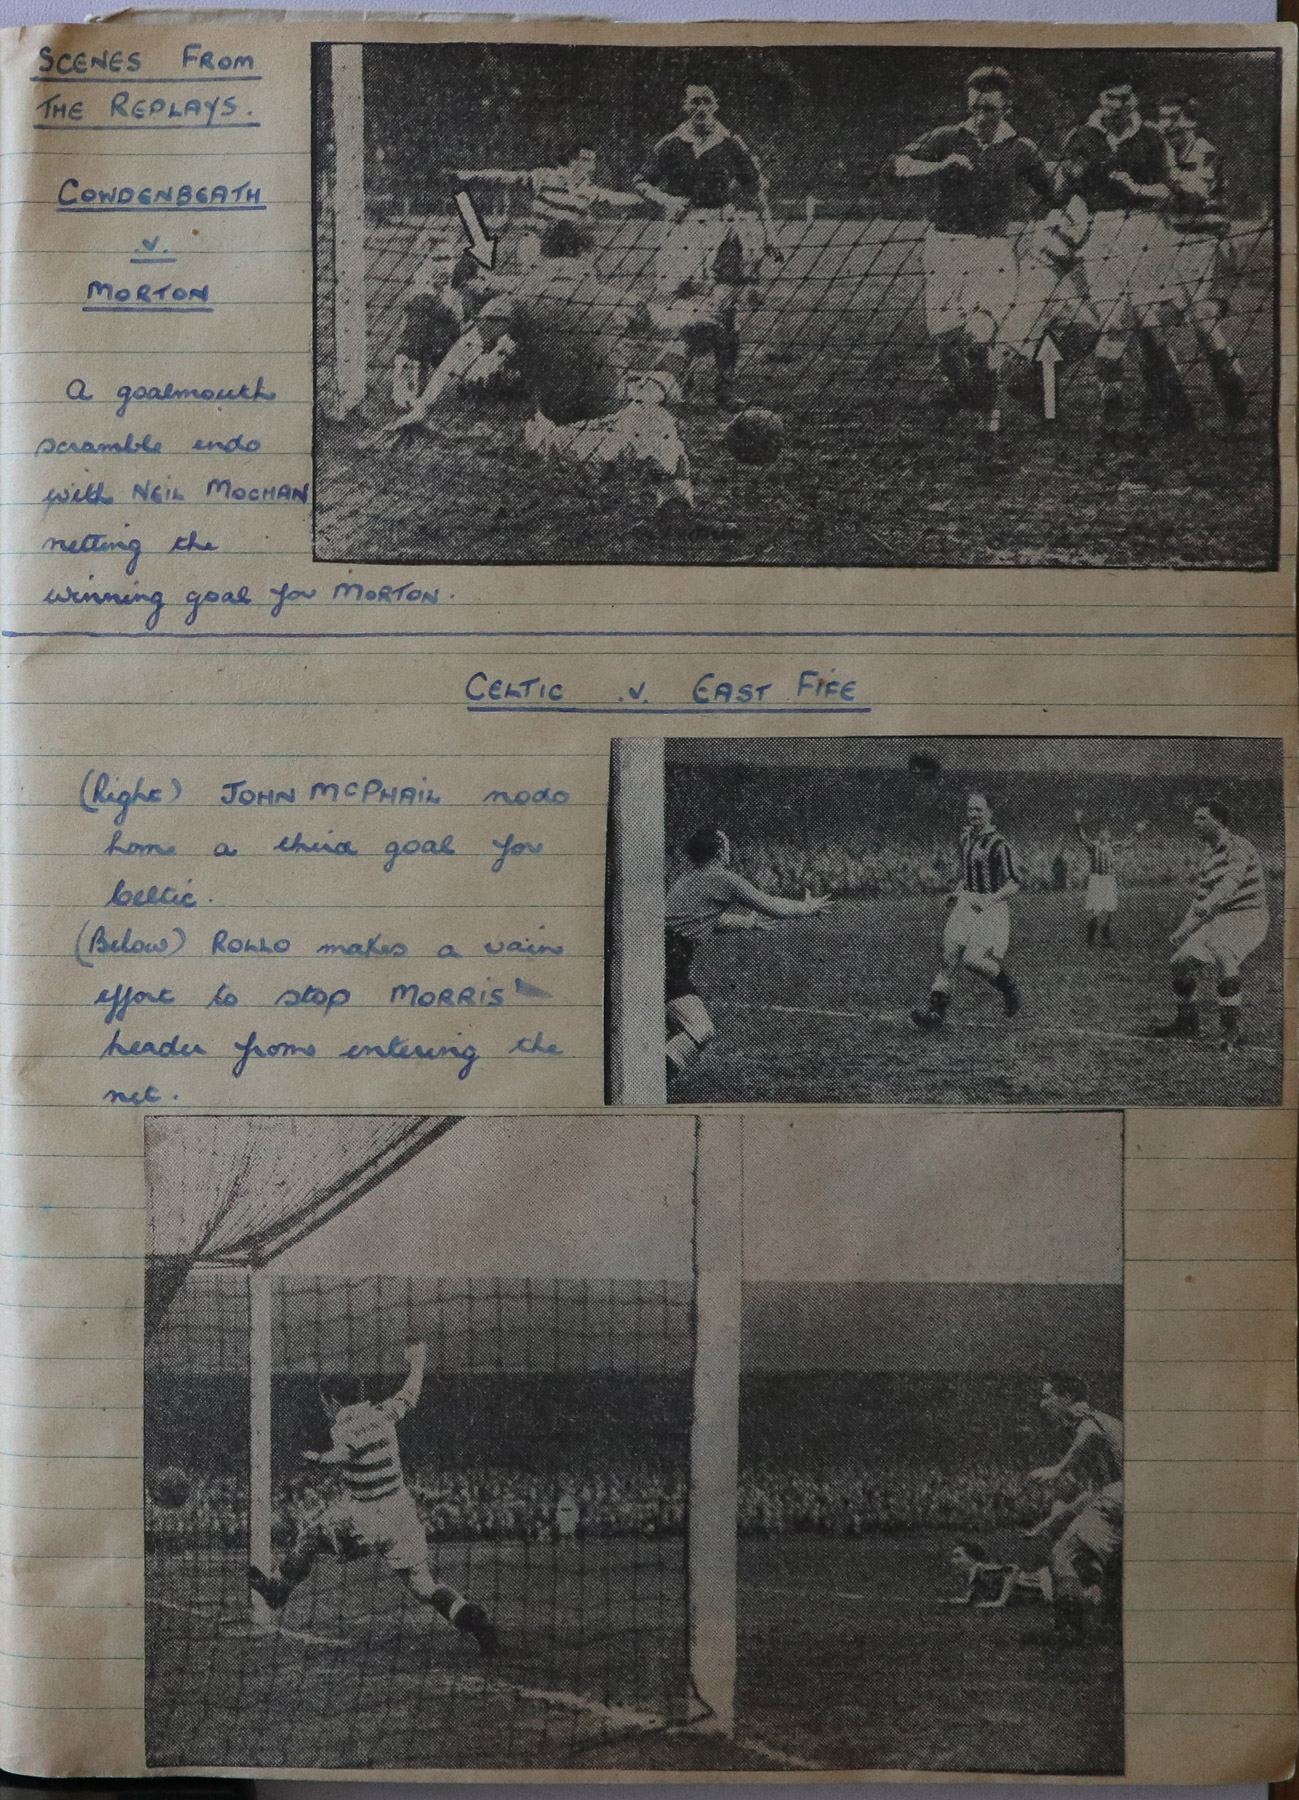 SCENES FROM
THE REPLAYS.
COWDENBEATH
v.
MORTON
A goalmouth
scramble ends
with NEIL MOCHAN
netting the
winning goal for MORTON.
CELTIC v. EAST FIFE
(Right) JOHN McPHAIL nods
home a third goal for
Celtic.
(Below) ROLLO makes a vain
effort to stop MORRIS'
header from entering the
net.